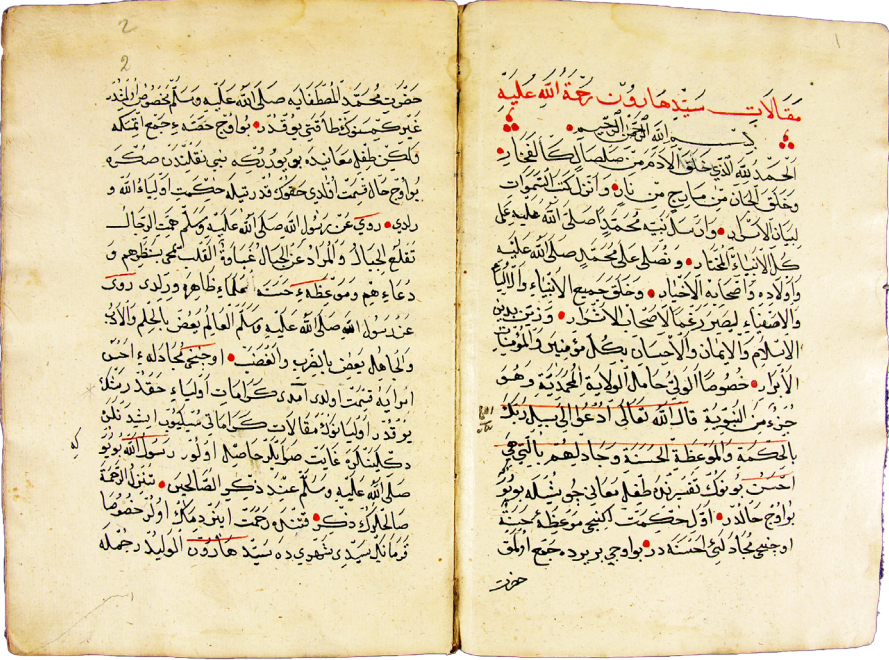 مقالات سيّد هارون رحمة الله عليه
بسم الله الرحمن الرحيم
الحمد لله الّذي خلق الآدم من صلصال كالفخّار
وخلق الجان من مارج من نار وانزل كتب السّموات
لبيان الاسرار وارسل نبيّه محمّدا صلى الله عليه على
كلّ الانبياء المختار ونصلى على محمّد صلى الله عليه
واولاده واصحابه الاخيار وخلق جميع الانبياء والاولياء
والاصفياء ليصير رغما لاصحاب الاشرار وزيّن بدين
الاسلام والايمان والاحسان بكل مؤمنين والمؤمنات
الابرار خصوصا الولىّ حامل الولاية المحمّديّة وهو
جزء من النبويّة قال الله تعالى ادعوا الى سبيل ربّك
بالحكمة والموعظة الحسنة وجادلهم بالّتي هي
احسن بونوك تفسيرنده طفلى معانى جو شله بويور
بو اوج حالدر اوّل حكمت ايكنجي موعظهٔ حسنه
اوجنجي مجادلهٔ احسنه در بو اوجي بريرده جمع اولمق
حضرت
2
2
حضرت محمّد المصطفايه صلى الله عليه وسلّم مخصوص اولمشدر
غيرى كمسنه‌نوك طاقتى يوقدر بو اوج حقّه‌ء جمع ايتمكه
ولكن طفلى معانيده بويوردركه نبى نقليندن صكره
بو اوج حال قسمت اولدى حقوك قدرتيله حكمت اولياء الله و
رادى روي عن رسول الله صلى الله عليه وسلّم همّت الرجال
تقلع الجبال والمراد عن الجبال غساوة القلب يمحى بنظرهم و
دعاءهم وموعظه‌ء حسنه علماء ظاهره ورلدى روى
عن رسول الله صلى الله عليه وسلّم العالم يعض بالحلم والادب
والجاهل يعض بالضرب والغضب اوجنجي مجادله‌ء احسن
امرايه قسمت اولدى آمدى كرامات اولياء حقدر
يوقدر اوليانوك مقالات كراماتى
دكلينلره غايت صوابلر حاصل اولور رسول الله بويور
صلى الله عليه وسلّم عند ذكر الصّالحين تنزل الرّحمة
صالحلروك ذكر رحمت اينر ديمك اولور خصوصا
قرمانك سيدى شهرى ده سيّد هارون الولي